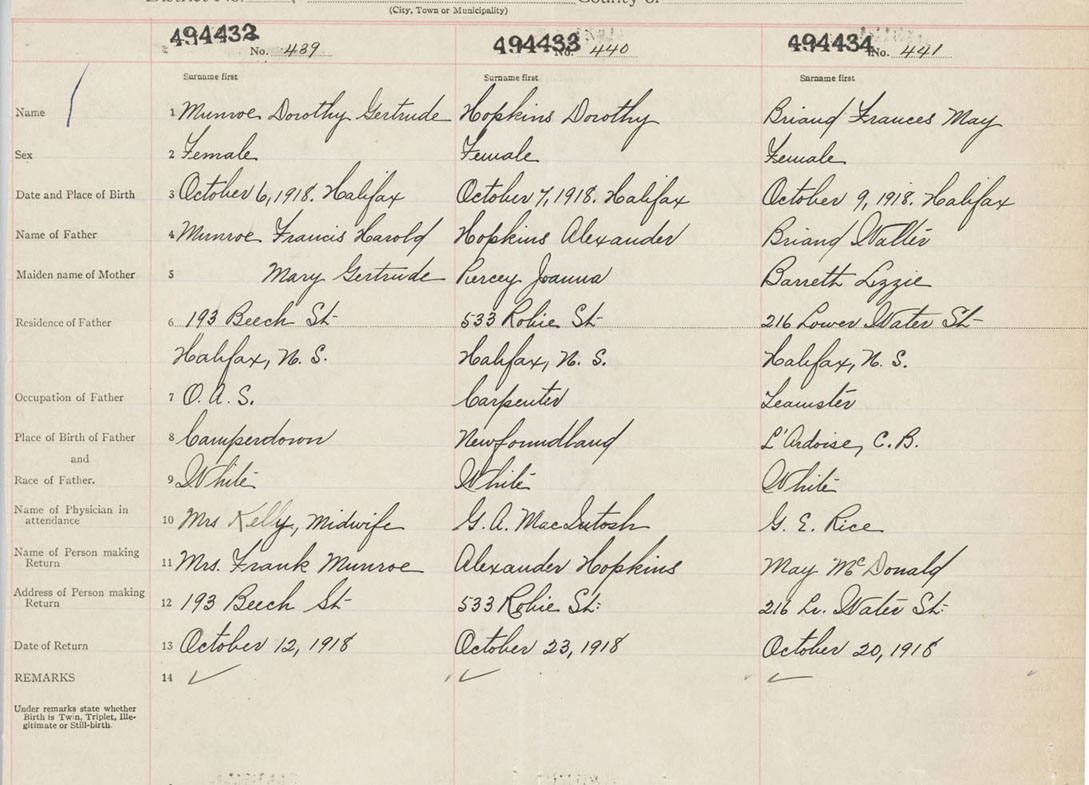 District No. County of
(City, Town or Municipality)
494432 No. 439 494433 No. 440 494434 No. 441
Surname first Surname first Surname first
Name 1 Munroe Dorothy Gertrude Hopkins Dorothy Briand Frances May
Sex 2 Female Female Female
Date and Place of Birth 3 October 6, 1918. Halifax October 7, 1918. Halifax October 9, 1918. Halifax
Name of Father 4 Munroe Francis Harold Hopkins Alexander Briand Walter
Maiden name of Mother 5 Mary Gertrude Piercey Joanna Barrett Lizzie
Residence of Father 6 193 Beech St 533 Robie St 216 Lower Water St
Halifax, N. S. Halifax, N. S. Halifax, N. S.
Occupation of Father 7 O. A. S. Carpenter Teamster
Place of Birth of Father 8 Camperdown Newfoundland L'Ardoise, C. B.
and
Race of Father. 9 White White White
Name of Physician in attendance 10 Mrs Kelly, Midwife G. A. MacIntosh G. E. Rice
Name of Person making Return 11 Mrs. Frank Munroe Alexander Hopkins May McDonald
Address of Person making Return 12 193 Beech St 533 Robie St: 216 Lr. Water St:
Date of Return 13 October 12, 1918 October 23, 1918 October 20, 1918
REMARKS 14 ✓ ✓ ✓
Under remarks state whether
Birth is Twin, Triplet, Ille-
gitimate or Still-birth.